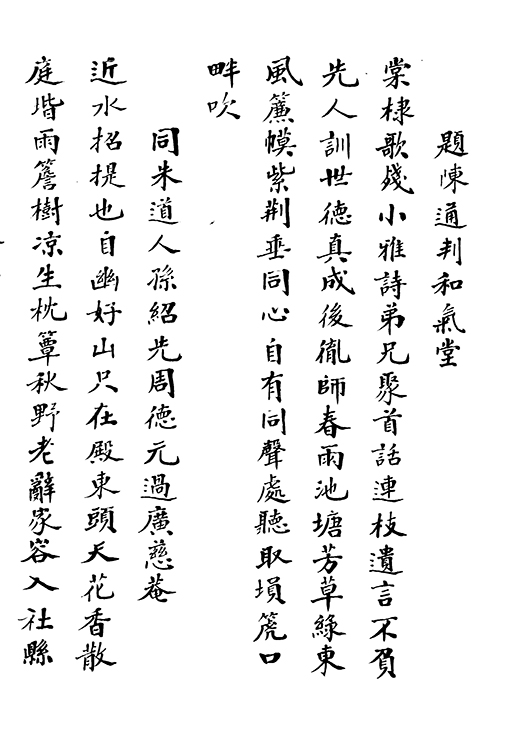 題陳通判和氣堂
棠棣歌殘小雅詩弟兄聚首話連枝遺言不負
先人訓世德真成後胤師春雨池塘芳草綠東
風簾幙紫荆垂同心自有同聲處聽取塤篪口
畔吹
同朱道人孫紹先周德元過廣慈菴
近水招提也自幽好山只在殿東頭天花香散
庭堦雨簷樹凉生枕簟秋野老辭家容入社縣